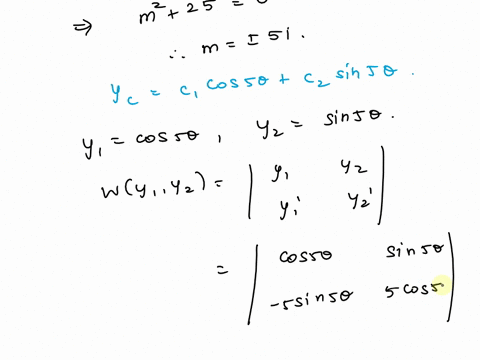 ⇒ m² + 25 = 0
∴ m = ± 5i.
y_c = c₁ cos5θ + c₂ sin5θ.
y₁ = cos5θ, y₂ = sin5θ.
W(y₁, y₂) = | y₁ y₂ |
| y₁' y₂' |
= | cos5θ sin5θ |
| -5sin5θ 5cos5 |